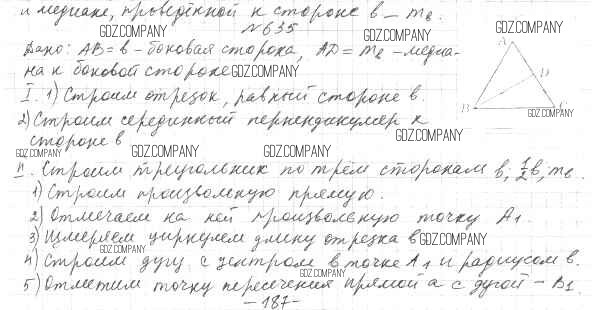 и медиане, проведённой к стороне b – m_b.
№635
GDZ.COMPANY
GDZ.COMPANY
Дано: AB = b – боковая сторона, AD = m_b – медиа-
на к боковой стороне GDZ.COMPANY
A
D
B
C
GDZ.COMPANY
I. 1) Строим отрезок, равный стороне b.
2) Строим серединный перпендикуляр к
стороне b
GDZ.COMPANY
GDZ.COMPANY
GDZ.COMPANY
GDZ.COMPANY
II. Строим треугольник по трём сторонам b; 1/2 b; m_b.
1) Строим произвольную прямую.
2) Отмечаем на ней произвольную точку A₁.
3) Измеряем циркулем длину отрезка b GDZ.COMPANY
GDZ.COMPANY
4) Строим дугу с центром в точке A₁ и радиусом b.
GDZ.COMPANY
5) Отметим точку пересечения прямой a с дугой – B₁.
– 187 –